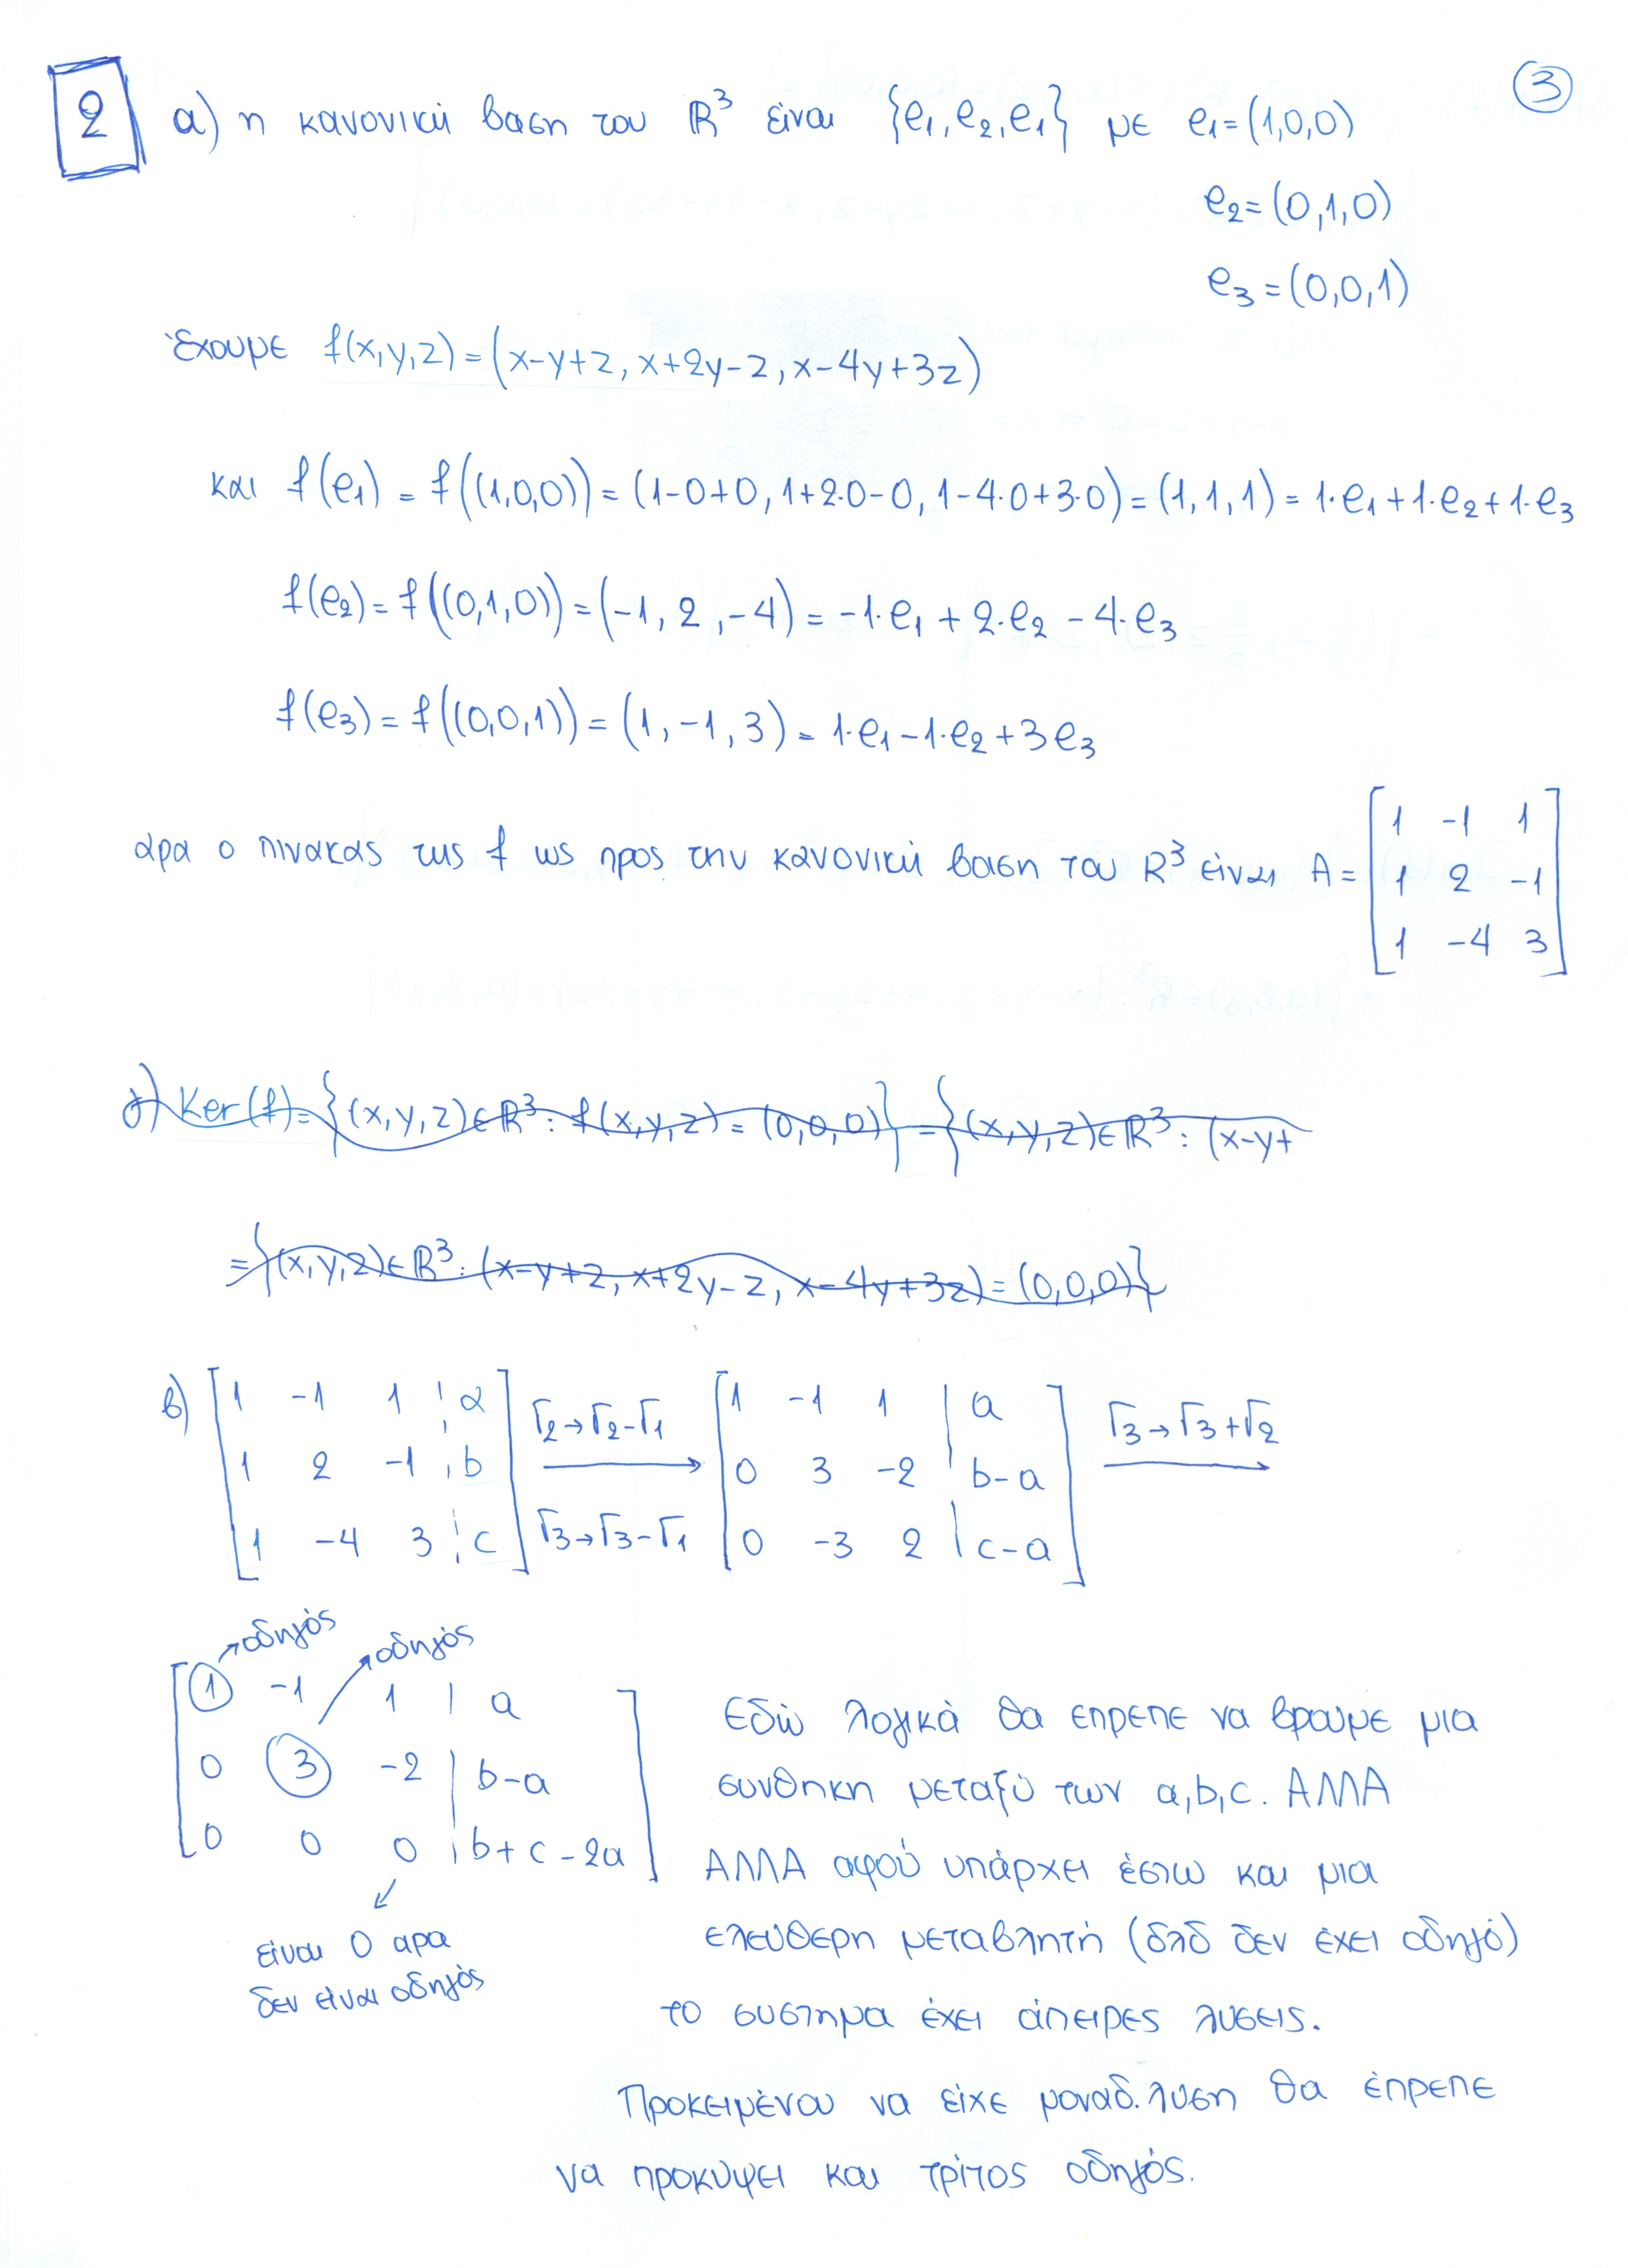 ③
2 α) η κανονική βαση του ℝ³ είναι {e₁,e₂,e₁} με e₁=(1,0,0)
e₂=(0,1,0)
e₃=(0,0,1)
Έχουμε f(x,y,z)=(x-y+z, x+2y-z, x-4y+3z)
και f(e₁) = f((1,0,0)) = (1-0+0, 1+2·0-0, 1-4·0+3·0) = (1,1,1) = 1·e₁+1·e₂+1·e₃
f(e₂) = f((0,1,0)) = (-1, 2, -4) = -1·e₁ + 2·e₂ - 4·e₃
f(e₃) = f((0,0,1)) = (1, -1, 3) = 1·e₁-1·e₂+3e₃
αρα ο πινακας της f ως προς την κανονική βαση του ℝ³ είναι A =
1 -1 1
1 2 -1
1 -4 3
γ) Ker(f)= {(x,y,z)∈ℝ³: f(x,y,z) = (0,0,0)} = {(x,y,z)∈ℝ³: (x-y+
={(x,y,z)∈ℝ³: (x-y+z, x+2y-z, x-4y+3z)=(0,0,0)}
β) 1 -1 1 ¦ α Γ₂→Γ₂-Γ₁ 1 -1 1 | a Γ₃→Γ₃+Γ₂
1 2 -1 ¦ b → 0 3 -2 | b-a →
1 -4 3 ¦ c Γ₃→Γ₃-Γ₁ 0 -3 2 | c-a
οδηγός οδηγός
1 -1 1 | a
0 3 -2 | b-a
0 0 0 ¦ b+c-2a
είναι 0 αρα
δεν είναι οδηγός
Εδώ λογικά θα επρεπε να βρουμε μια
συνθηκη μεταξύ των a,b,c. ΑΛΛΑ
ΑΛΛΑ αφού υπάρχει έστω και μια
ελευθερη μεταβλητή (δλδ δεν έχει οδηγό)
το συστημα έχει άπειρες λυσεις.
Προκειμένου να είχε μοναδ. λυση θα έπρεπε
να προκυψει και τρίτος οδηγός.